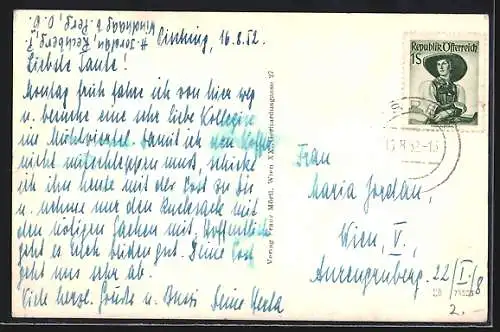 Aisching, 16.8.52.
Liebste Tante!
Montag früh fahre ich von hier weg
u. besuche eine sehr liebe Kollegin
im Mühlviertel. Damit ich den Koffer
nicht mitschleppen muss, schicke
ich ihn heute mit der Post zu dir
u. nehme nur den Rucksack mit
den nötigen Sachen mit. Hoffentlich
geht es euch beiden gut. Deine
geht uns sehr ab.
Viele herzl. Grüße u. Bussi Deine Herta
Verlag Franz Mörtl, Wien XX, Gerhardusgasse 27
Republik Österreich
1S
Frau
Maria Jordan,
Wien, V.,
22/I/8
2.-